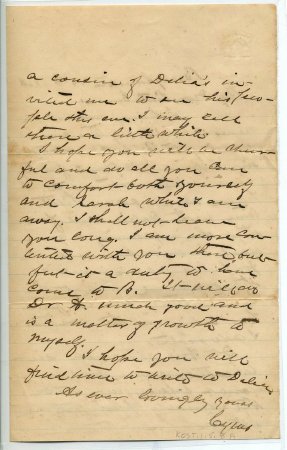 a cousin of Delia's in-
vited me to see his peo-
ple this eve. I may call
there a little while.
I hope you will be cheer-
ful and do all you can
to comfort both yourself
and Sarah while I am
away. I shall not leave
you long. I am more con-
tented with you there, but
felt it a duty to have
come to B. It will do
Dr. H. much good and
is a matter of growth to
myself. I hope you will
find time to write to Delia.
As ever lovingly yours
Cyrus